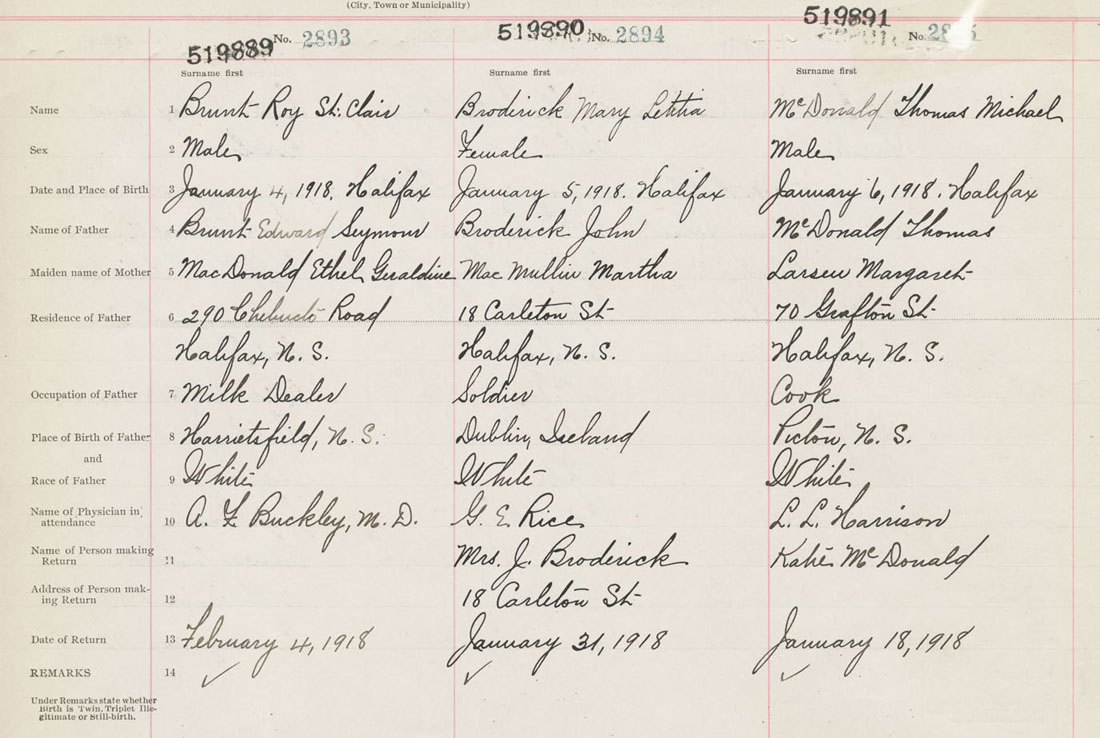 (City, Town or Municipality)
519889 No. 2893 519890 No. 2894 519891 No.
Surname first Surname first Surname first
Name 1 Brunt Roy St. Clair Broderick Mary Letitia McDonald Thomas Michael
Sex 2 Male Female Male
Date and Place of Birth 3 January 4, 1918. Halifax January 5, 1918. Halifax January 6, 1918. Halifax
Name of Father 4 Brunt Edward Seymour Broderick John McDonald Thomas
Maiden name of Mother 5 MacDonald Ethel Geraldine Mac Mullin Martha Larsen Margaret
Residence of Father 6 290 Chebucto Road 18 Carleton St 70 Grafton St
Halifax, N. S. Halifax, N. S. Halifax, N. S.
Occupation of Father 7 Milk Dealer Soldier Cook
Place of Birth of Father 8 Harrietsfield, N. S. Dublin, Ireland Pictou, N. S.
and
Race of Father 9 White White White
Name of Physician in attendance 10 A. F. Buckley, M. D. G. E. Rice L. L. Harrison
Name of Person making Return 11 Mrs. J. Broderick Katie McDonald
Address of Person mak-
ing Return 12 18 Carleton St
Date of Return 13 February 4, 1918 January 31, 1918 January 18, 1918
REMARKS 14
Under Remarks state whether
Birth is Twin, Triplet Ille-
gitimate or Still-birth.